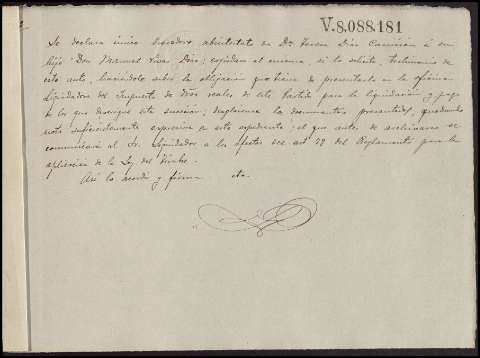 V.8.088.181
Se declara único heredero abintestato de Dª Teresa Dias á su
hijo Don Manuel Dias; espídase al mismo, si lo solicita, testimonio de
este auto, haciéndole saber la obligación que tiene de presentarlo en la oficina
liquidadora del Impuesto de dros reales de este partido para la liquidación y pago
de los que devengue esta sucesión; desglosense los documentos presentados, quedando
nota suficientemente expresiva en este expediente; el que antes de archivarse se
comunicará al Sr. Liquidador a los efectos del art del Reglamento para la
aplicación de la Ley del
Así lo acordó y firma